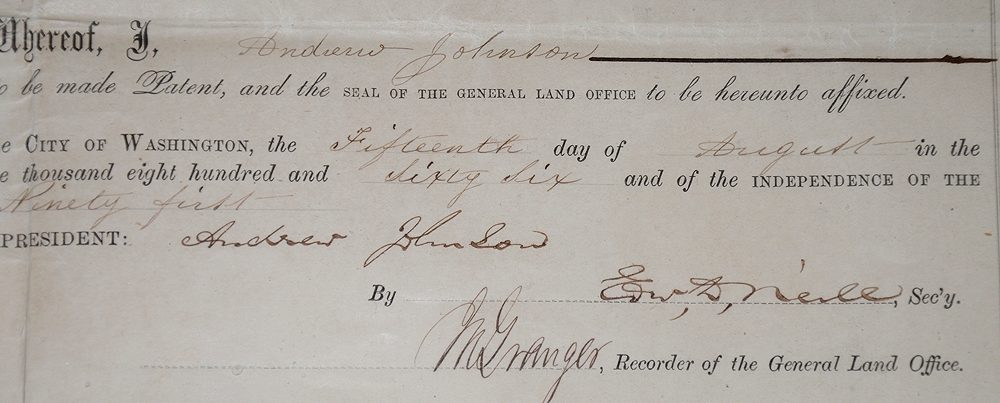 Whereof, I, Andrew Johnson
o be made Patent, and the SEAL OF THE GENERAL LAND OFFICE to be hereunto affixed.
e CITY OF WASHINGTON, the Fifteenth day of August in the
e thousand eight hundred and Sixty Six and of the INDEPENDENCE OF THE
Ninety first
PRESIDENT: Andrew Johnson
By Edw, D, Neill, Sec'y.
Granger, Recorder of the General Land Office.